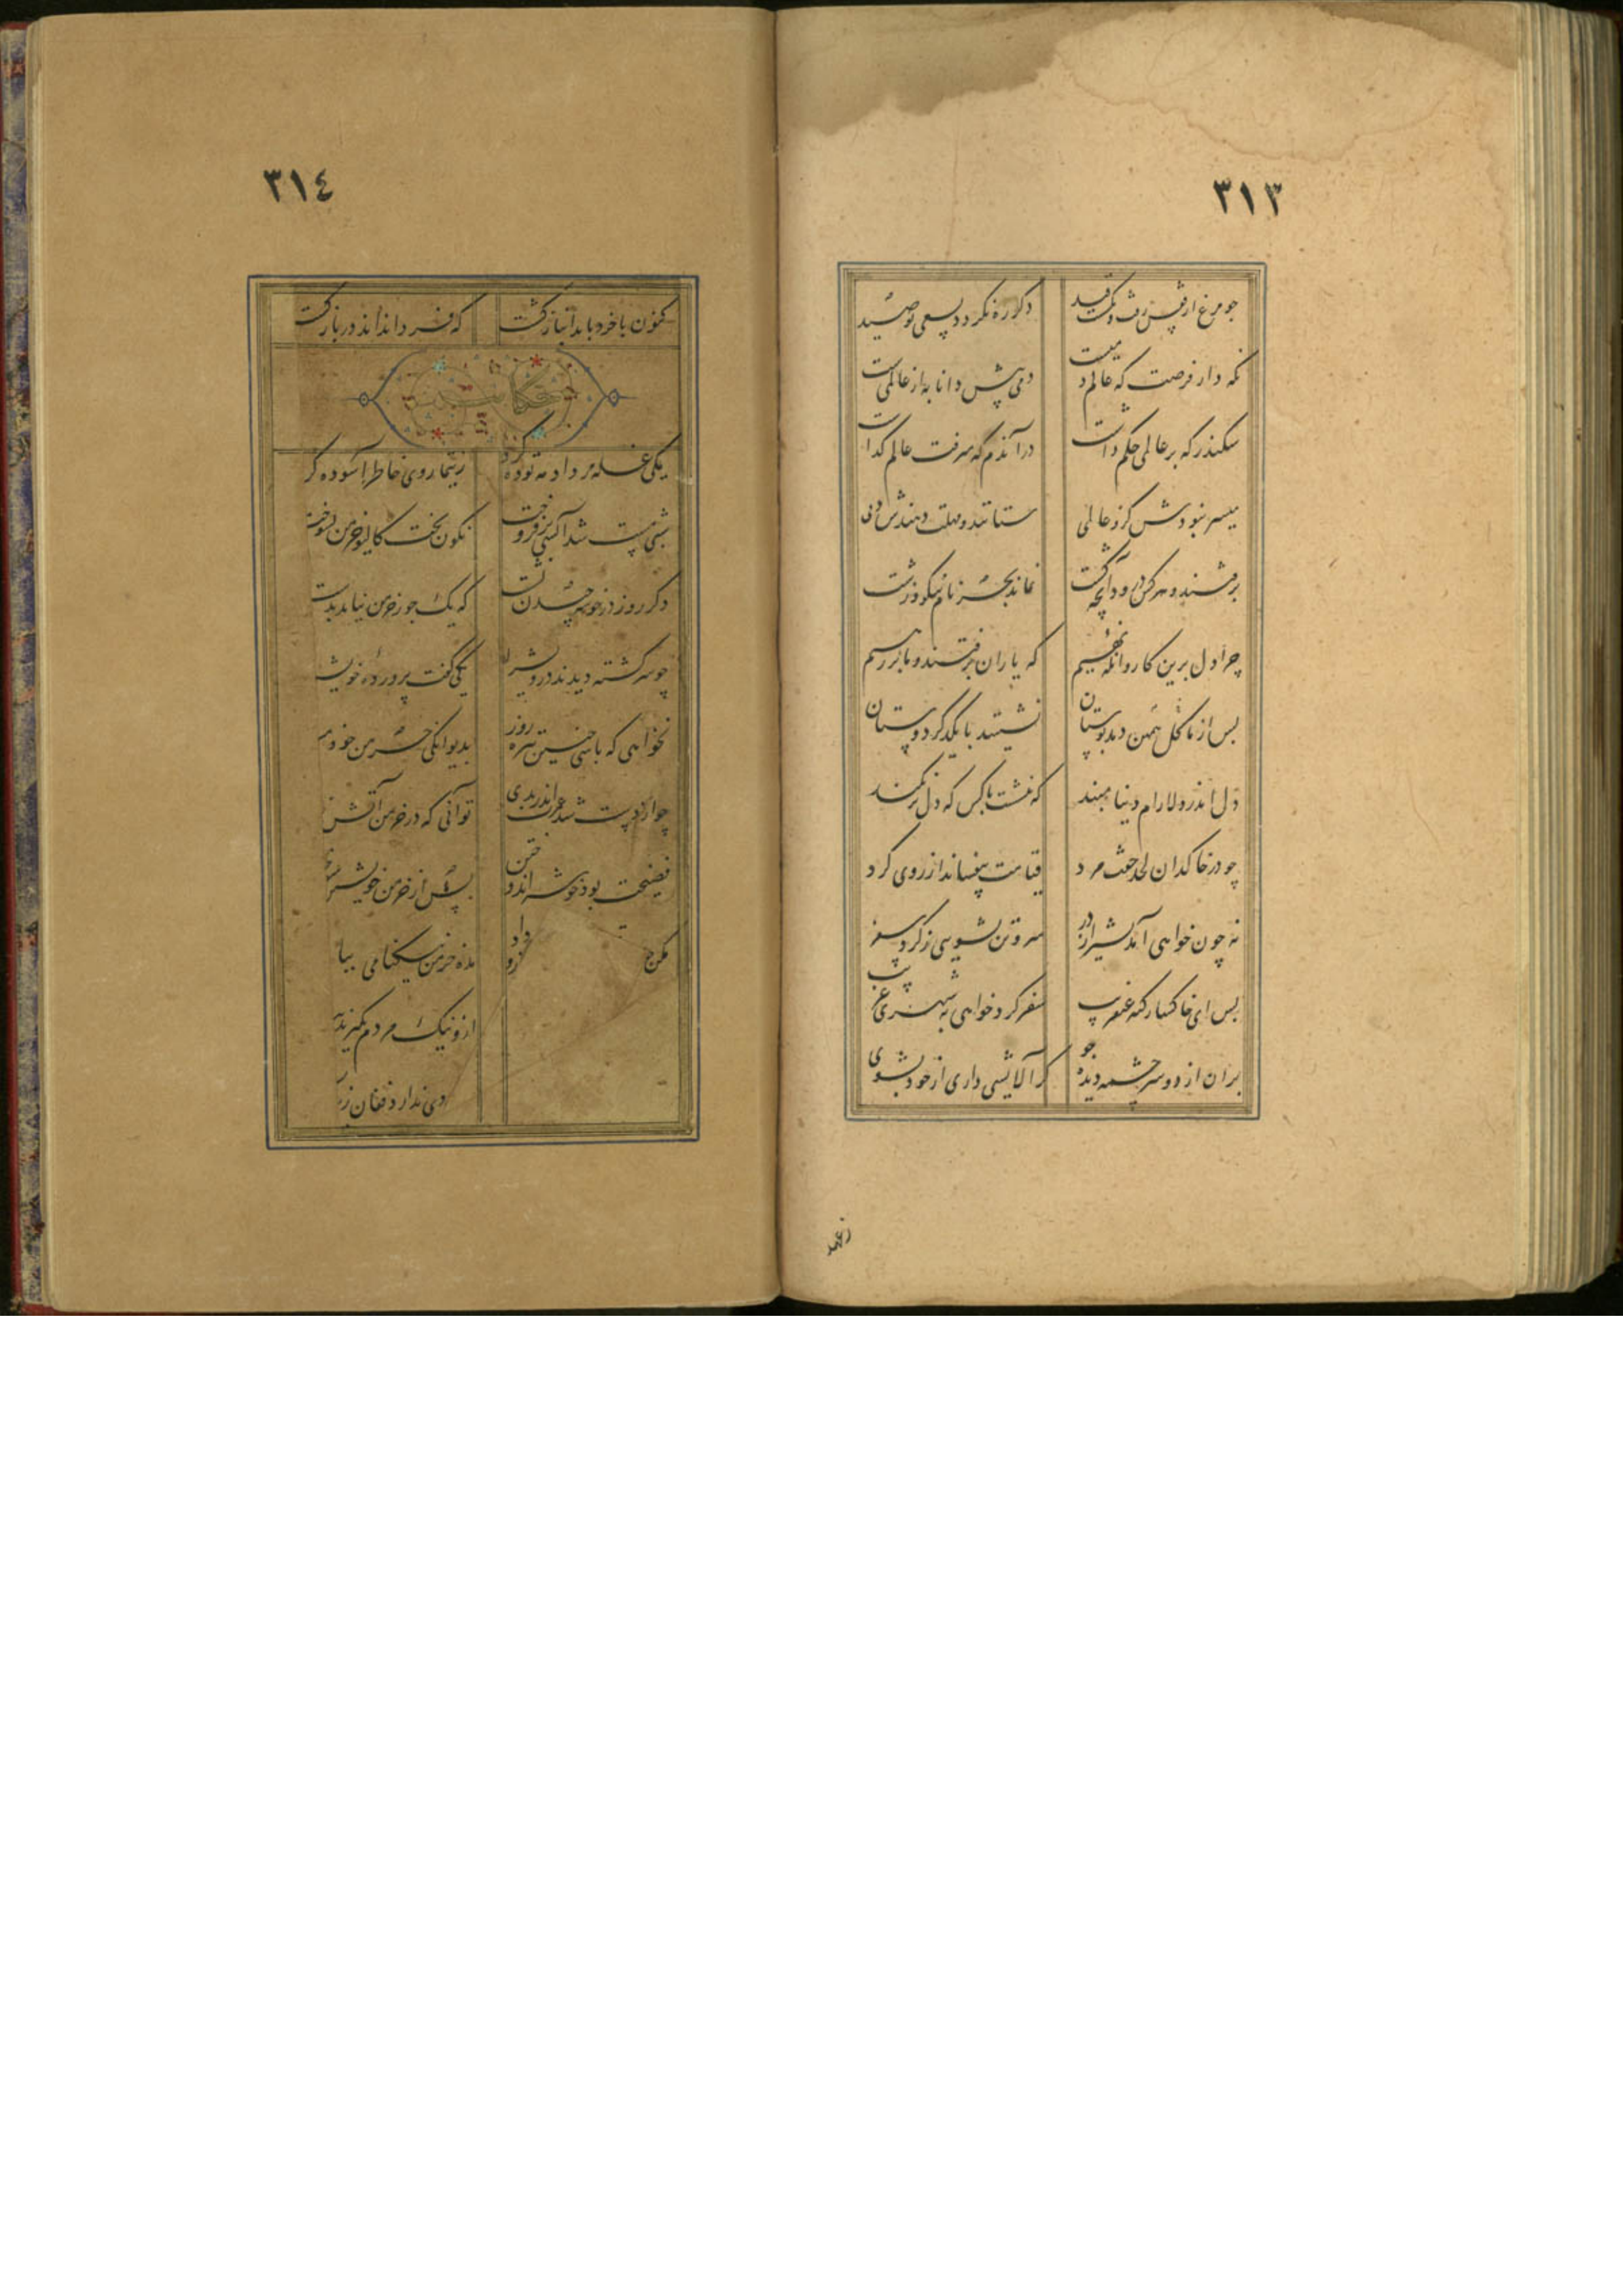 ٣١٣
چو مرغ از قفس رفت و بگسست قید دگر ره نگردد بسعی تو صید
نگه دار فرصت که عالم دمیست دمی پیش دانا به از عالمیست
سکندر که بر عالمی حکم داشت در آندم که میرفت عالم گذاشت
میسر نبودش کزو عالمی ستانند و مهلت دهندش دمی
برفتند و هرکس درود آنچه کشت نماند بجز نام نیکو و زشت
چرا دل برین کاروانگه نهیم که یاران برفتند و ما بر رهیم
پس از ما همین گل دهد بوستان نشینند با یکدگر دوستان
دل اندر دلارام دنیا مبند که ننشست با کس که دل بر نکند
چو در خاکدان لحد خفت مرد قیامت بیفشاند از روی گرد
نه چون خواهی آمد بشیراز در سر و تن بشویی ز گرد سفر
پس ای خاکسار گنه عنقریب سفر کرد خواهی به شهری غریب
بران از دو سر چشمه دیده جوی گر آلایشی داری از خود بشوی
٣١٤
کنون با خرد باید انباز گشت که فردا نماند در باز گشت
حکایت
یکی غله مرداد مه توده کرد ز تیمار وی خاطر آسوده کر
شبی مست شد آتشی بر فروخت نگون بخت کالیوه خرمن بسوخت
دگر روز در خوشه چیدن نشست که یک جو ز خرمن نیامد بدست
چو سرگشته دیدند درویش را یکی گفت پرورده خویش
نخواهی که باشی چنین تیره روز بدیوانگی خرمن خود مس
چو از دست شد عمرت اندر بدی تو آنی که در خرمن آتش ز
فضیحت بود خوشه اندوختن پس از خرمن خویشتن
مکن ج داد و مده خرمن نیکنامی بباد
ازو نیک مردم بگیرند
دی ندارد فغان زیر